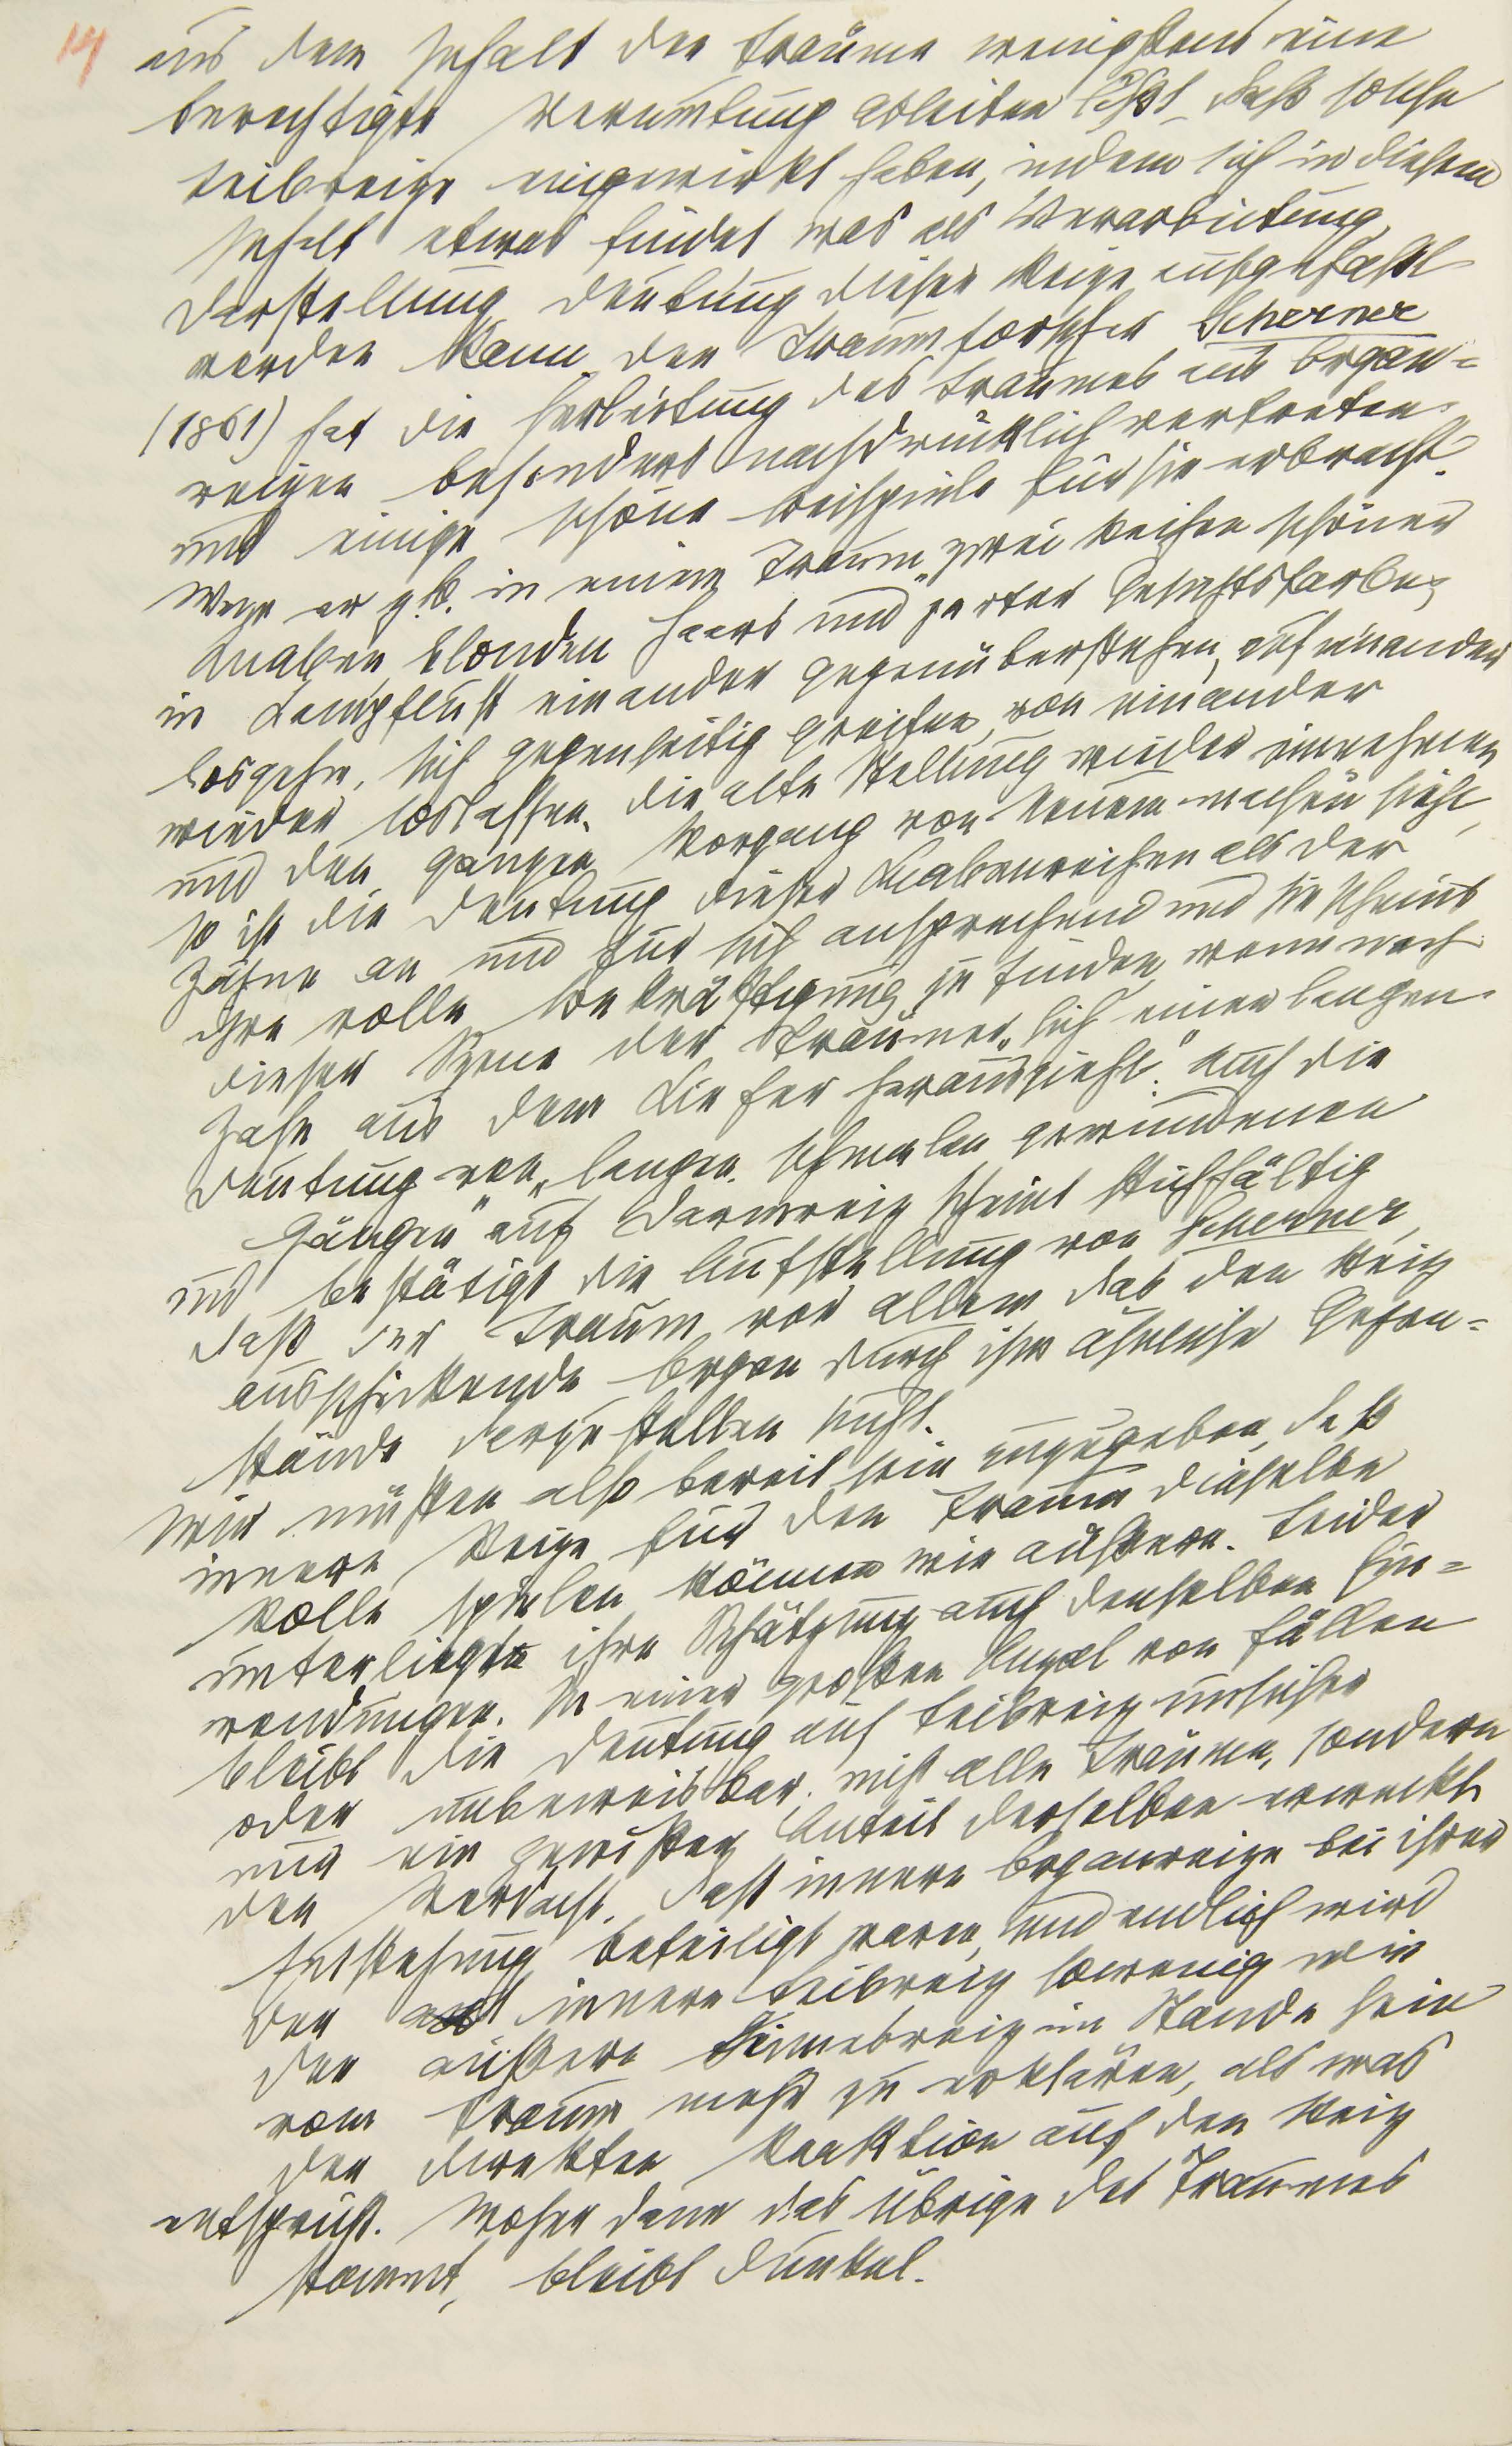 14
aus dem Inhalt der Träume wenigstens eine
berechtigte Vermutung ableiten läßt, daß solche
Leibreize eingewirkt haben, indem sich in diesem
Inhalt etwas findet was als Verarbeitung,
Darstellung, Deutung dieser Reize aufgefaßt
werden kann. Der Traumforscher Scherner
(1861) hat die Herleitung des Traumes aus Organ=
reizen besonders nachdrücklich vertreten
und einige schöne Beispiele für sie erbracht.
Wenn er z.B. in einem Traum „zwei Reihen schöner
Knaben, blonden Haars und zarter Gesichtsfarbe,
in Kampflust einander gegenüberstehen, auf einander
losgehn, sich gegenseitig greifen, von einander
wieder loslassen, die alte Stellung wieder einnehmen
und den ganzen Vorgang von neuem machen sieht,
so ist die Deutung dieser Knabenreihen als der
Zähne an und für sich ansprechend und sie scheint
ihre volle Bekräftigung zu finden, wenn nach
dieser Szene der Träumer „sich einen langen
Zahn aus dem Kiefer herauszieht.“ Auch die
Deutung von „langen, schmalen, gewundenen
Gängen“ auf Darmreiz scheint stichhältig
und bestätigt die Aufstellung von Scherner,
daß der Traum vor allem das den Reiz
ausschickende Organ durch ihm ähnliche Gegen=
stände darzustellen sucht.
Wir müßen also bereit sein zuzugeben, daß
innere Reize für den Traum dieselbe
Rolle spielen können wie äußere. Leider
unterliegt ihre Schätzung auch denselben Ein=
wendungen. In einer großen Anzal von Fällen
bleibt die Deutung auf Leibreiz unsicher
oder unbeweisbar, nicht alle Träume, sondern
nur ein gewißer Anteil derselben erweckt
den Verdacht, daß innere Organreize bei ihrer
Entstehung beteiligt waren, und endlich wird
der innere Leibreiz sowenig wie
der äußere Sinnesreiz im Stande sein
vom Traum mehr zu erklären, als was
der direkten Reaktion auf den Reiz
entspricht. Woher dann das übrige des Traumes
stammt, bleibt dunkel.